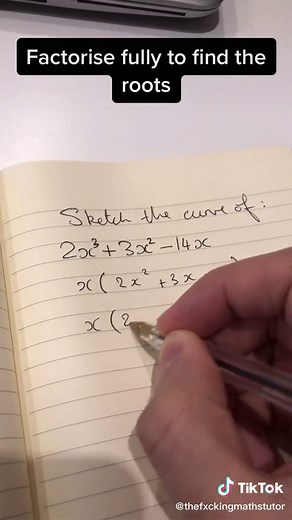 Factorise fully to find the
roots
Sketch the curve of:
2x³+3x²-14x
x(2x²+3x
x(2
TikTok
@thefxckingmathstutor